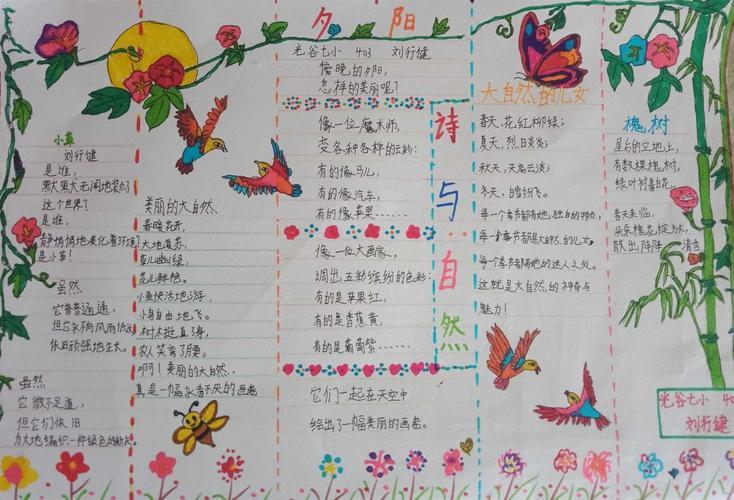 小草
刘行健
是谁,
默默无闻地装点了
这个世界?
是谁,
静悄悄地美化着环境
是小草!
虽然
它普普通通,
但它永向风雨低头
依旧顽强地生长。
虽然
它微不足道,
但它们依旧
为大地编织一件绿色的新衣。
美丽的大自然
春暖花开,
大地复苏,
春儿幽绿,
花儿鲜艳。
小鱼快活地游,
小鸟自由地飞。
树木挺直身,
农人笑弯了腰。
啊!美丽的大自然,
真是一幅永看不厌的画卷
夕阳
光谷七小 403 刘行健
傍晚的夕阳,
怎样的美丽呢?
像一位魔术师,
变各种各样的云彩:
有的像马儿,
有的像汽车,
有的像苹果……
像一位大画家,
调出五彩缤纷的色彩:
有的是苹果红,
有的是香蕉黄,
有的是葡萄紫……
它们一起在天空中
绘出了一幅美丽的画卷。
诗与自然
大自然的儿女
春天,花红柳绿;
夏天,烈日炎炎;
秋天,天高云淡;
冬天,白雪纷飞。
每一个季节都有她独自的特点,
每一个季节都是大自然的儿女。
每个季节都有她的迷人之处。
这就是大自然的神奇与
魅力!
槐树
屋后的空地上,
有数棵槐树,
绿叶衬着花,
春天来临,
朵朵槐花绽放,
散出阵阵清香
光谷七小 403
刘行健